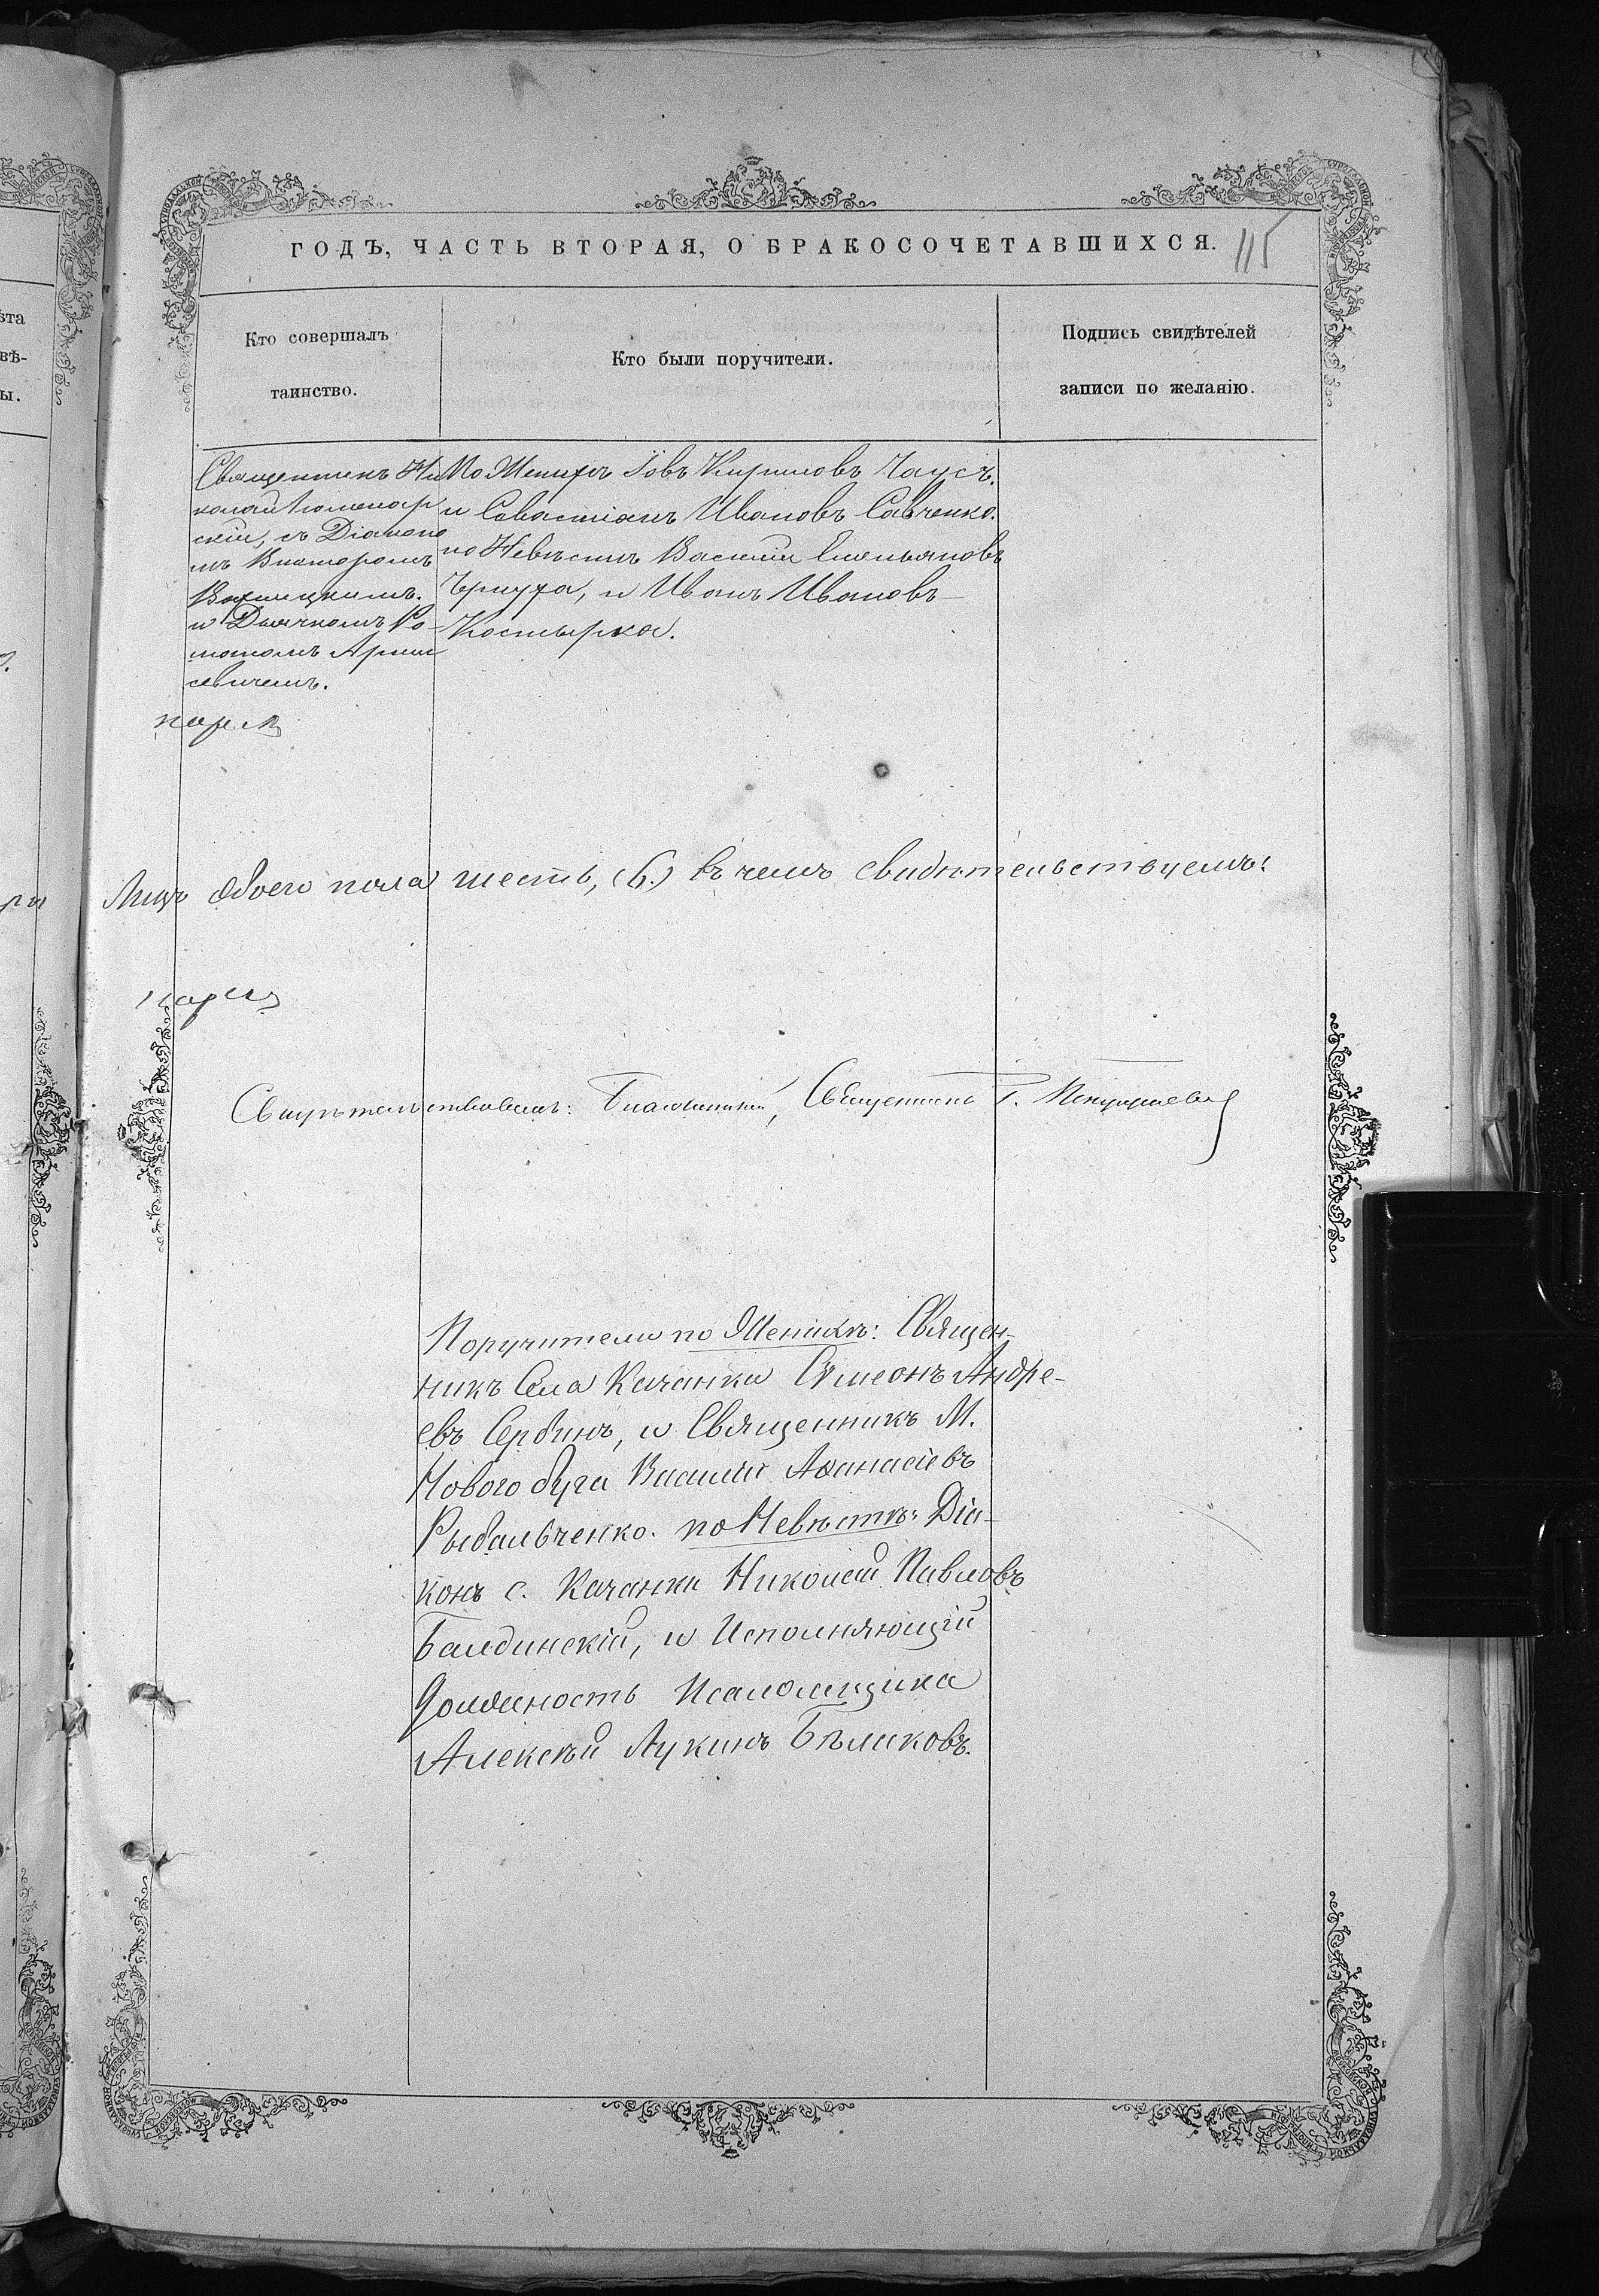 ГОДЪ, ЧАСТЬ ВТОРАЯ, О БРАКОСОЧЕТАВШИХСЯ. 115
Кто совершалъ
таинство.
Кто были поручители.
Подпись свидѣтелей
записи по желанію.
Священникъ Ни
колай
скій, съ Діаконо
мъ Викторомъ
и Дьячкомъ Ро-
маномъ
севичемъ.
По Жениху Іовъ Кириловъ Чаусъ.
и Савастіанъ Ивановъ Савченко.
по Невѣстѣ Василій Емельяновъ
и Иванъ Ивановъ
Костырка.
Лицъ обоего пола шесть, (6.) въ чемъ свидѣтельствуемъ:
Свидѣтельствовалъ: Благочинный, Священникъ Г.
Поручители по Женихѣ: Священ-
никъ Села Качанки Симеонъ Андре-
евъ Сербинъ, и Священникъ М.
Нового буга Василій Аѳанасіевъ
Рыбальченко. по Невѣстѣ: Діа-
конъ с. Качанки Николай Павловъ
Балдинскій, и Исполняющій
Должность Псаломщика
Алексѣй Лукинъ Бѣликовъ.